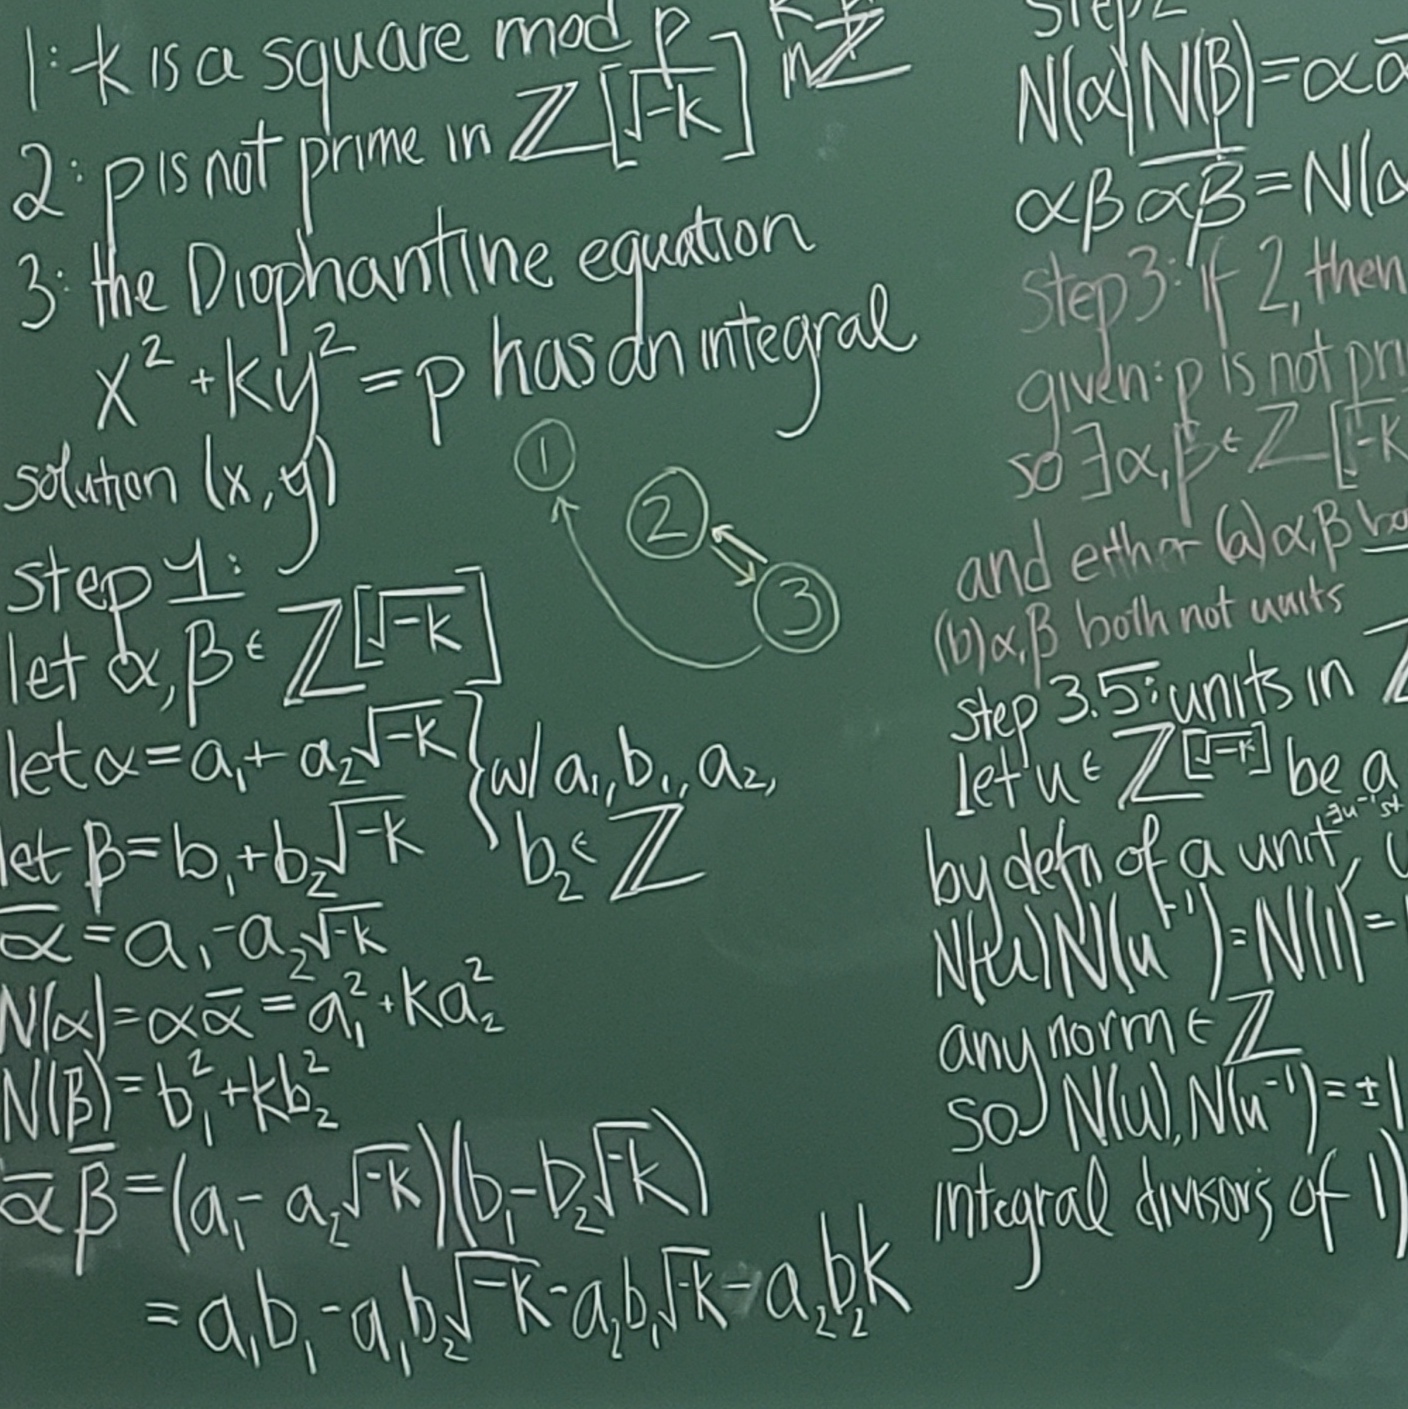 1: -k is a square mod p
in ℤ
2: p is not prime in ℤ[√-k]
3: the Diophantine equation
x² + ky² = p has an integral
solution (x, y)
① ② ③
step 1:
let α, β ∈ ℤ[√-k]
let α = a₁ + a₂√-k } w/ a₁, b₁, a₂,
let β = b₁ + b₂√-k b₂ ∈ ℤ
α̅ = a₁ - a₂√-k
N(α) = αα̅ = a₁² + ka₂²
N(β) = b₁² + kb₂²
α̅ β̅ = (a₁ - a₂√-k)(b₁ - b₂√-k)
= a₁b₁ - a₁b₂√-k - a₂b₁√-k - a₂b₂k
step 2
N(α)N(β) = αα̅
αβ α̅β̅ = N(α
step 3: if 2, then
given: p is not pri
so ∃α, β ∈ ℤ[√-k
and either (a) α, β bo
(b) α, β both not units
step 3.5: units in ℤ
let u ∈ ℤ[√-k] be a
by defn of a unit, ∃u⁻¹ st
N(u)N(u⁻¹) = N(1) =
any norm ∈ ℤ
so N(u), N(u⁻¹) = ±1
integral divisors of 1)